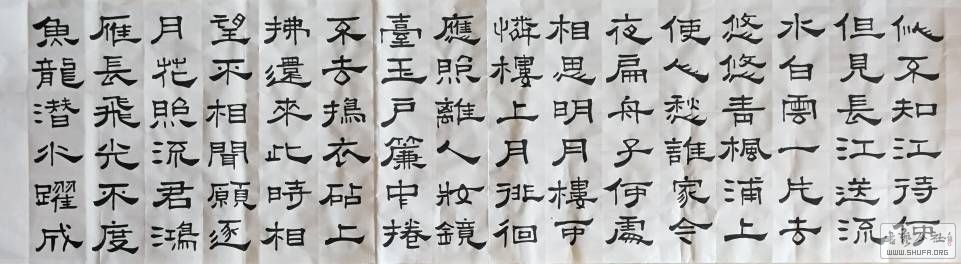 似不知江待何
但見長江送流
水白雲一片去
悠悠青楓浦上
使人愁誰家今
夜扁舟子何處
相思明月樓可
憐樓上月徘徊
應照離人妝鏡
臺玉戶簾中捲
不去搗衣砧上
拂還來此時相
望不相聞願逐
月花照流君鴻
雁長飛光不度
魚龍潛水躍成
WWW.SHUFA.ORG